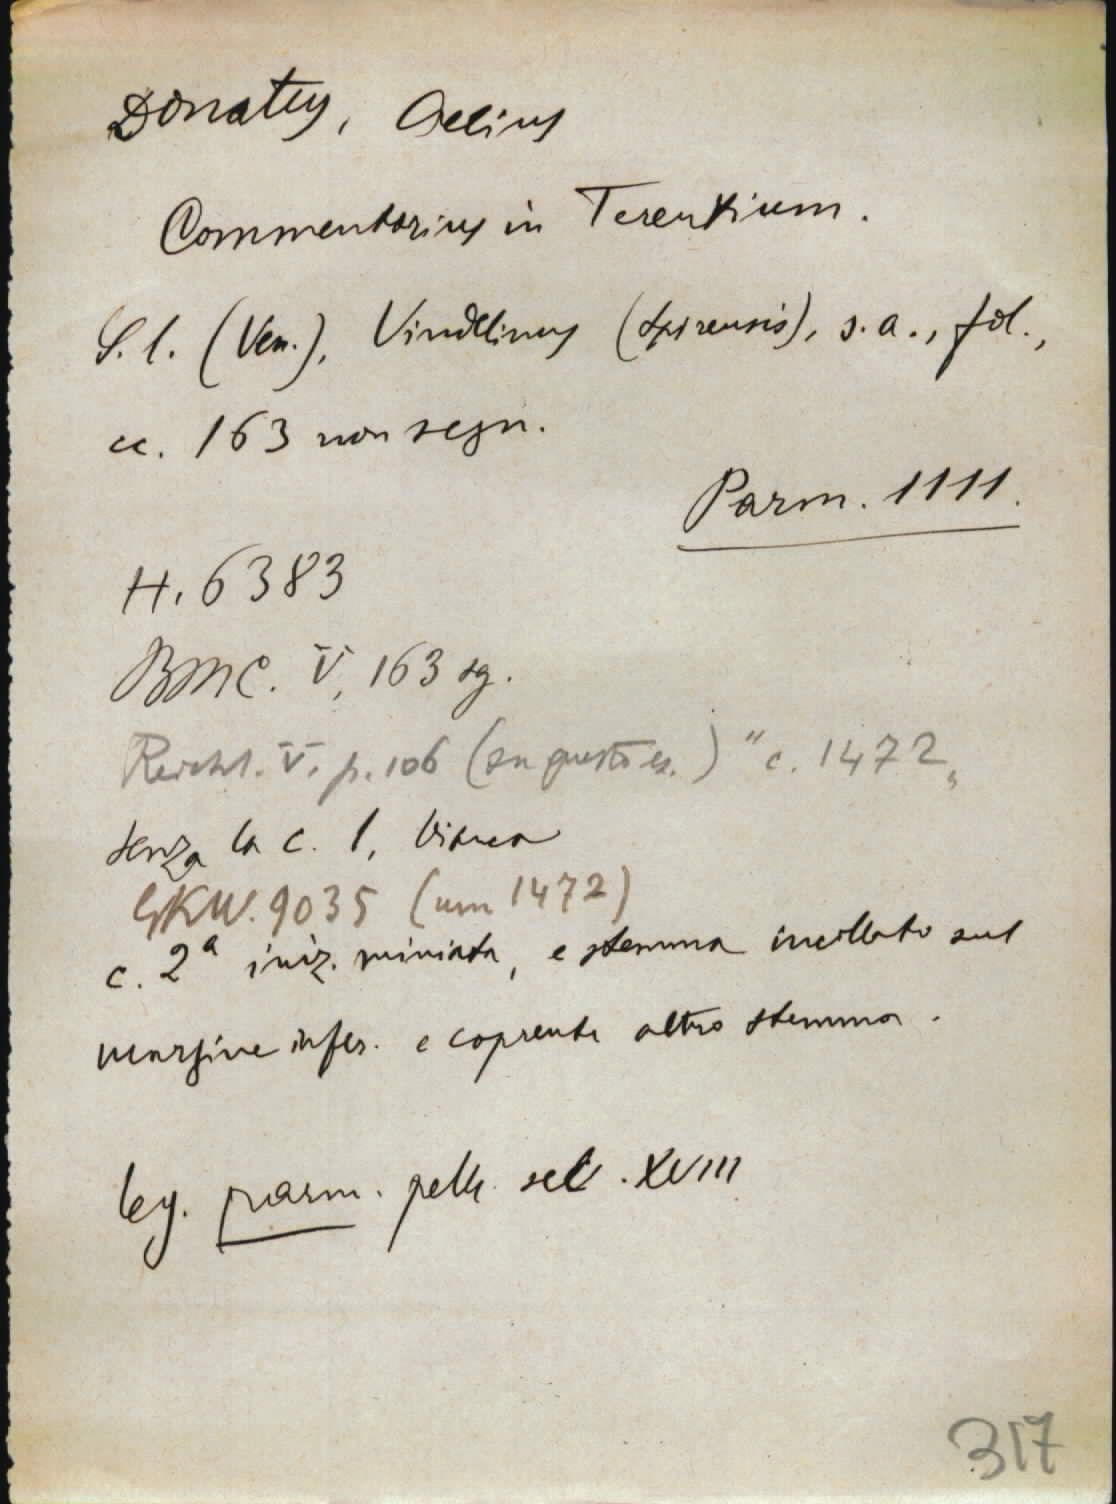 Donatus, Aelius
Commentarius in Terentium.
S. l. (Ven.), Vindelinus (Spirensis), s. a., fol.,
cc. 163 non segn.
Parm. 1111.
H. 6383
BMC. V, 163 sg.
Reichl. V. p. 106 (su questo es.) "c. 1472„
senza la c. 1, bianca
GKW. 9035 (um 1472)
c. 2ª iniz. miniata, e stemma incollato sul
margine infer. e coprente altro stemma.
leg. parm. pelle sec. XVIII
317